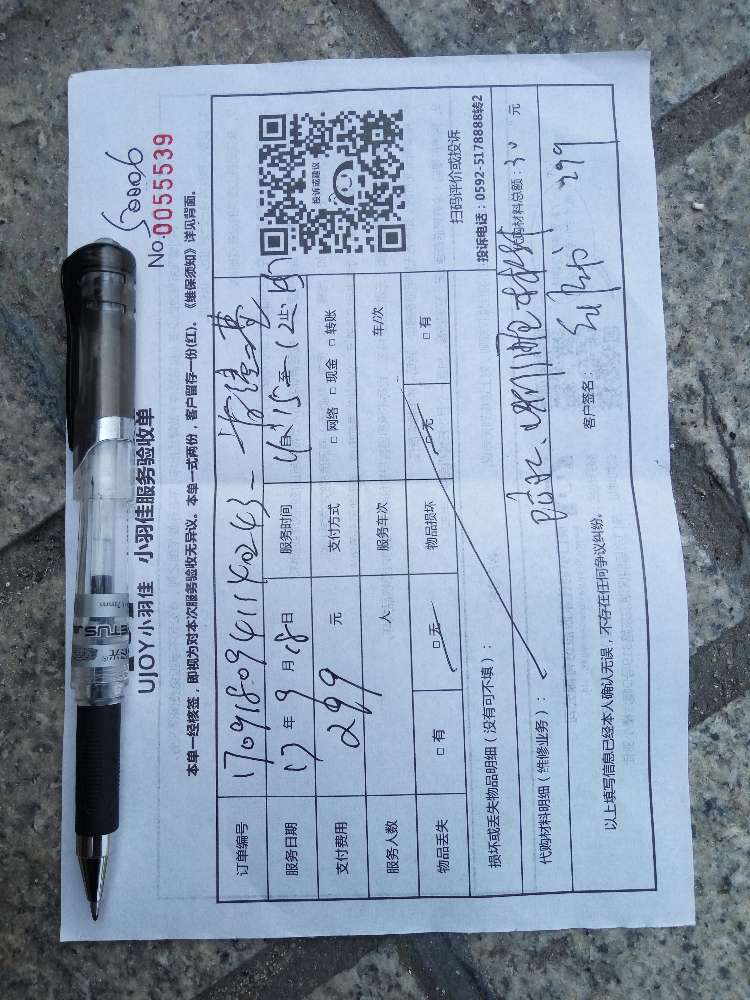 50006
UJOY小羽佳 小羽佳服务验收单
No.0055539
本单一经核签，即视为对本次服务验收无异议。本单一式两份，客户留存一份(红)。《维保须知》详见背面。
订单编号 170918094111
服务日期 17年9月18日 服务时间 自 至 止
支付费用 299元 支付方式 □网络 □现金 □转账
服务人数 人 服务车次 车/次
物品丢失 □有 □无 物品损坏 □无 □有
投诉或建议
扫码评价或投诉
投诉电话：0592-5178888转2
损坏或丢失物品明细（没有可不填）：
代购材料明细（维修业务）： 代购材料总额：30 元
以上填写信息已经本人确认无误，不存在任何争议纠纷。 客户签名： 299